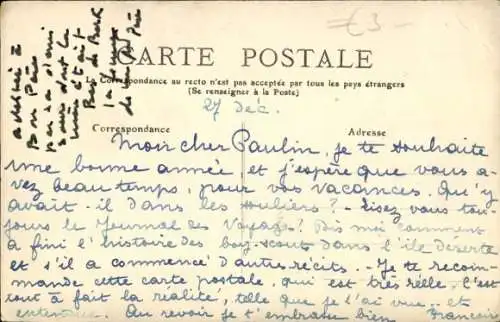 €3-
CARTE POSTALE
La Correspondance au recto n'est pas acceptée par tous les pays étrangers
(Se renseigner à la Poste)
27 Déc.
Correspondance
Adresse
Mon cher Paulin, je te souhaite
une bonne année, et j'espère que vous a-
vez beau temps, pour vos vacances. Qu'y
avait-il dans les souliers? - Lisez vous tou-
jours le Journal des Voyages? Dis moi comment
a fini l'histoire des boy-scout dans l'île déserte
et s'il a commencé d'autres récits. - Je te recom-
mande cette carte postale, qui est très réelle. C'est
tout à fait la réalité, telle que je l'ai vue.. et
entendue. Au revoir je t'embrasse bien François
Bon Père